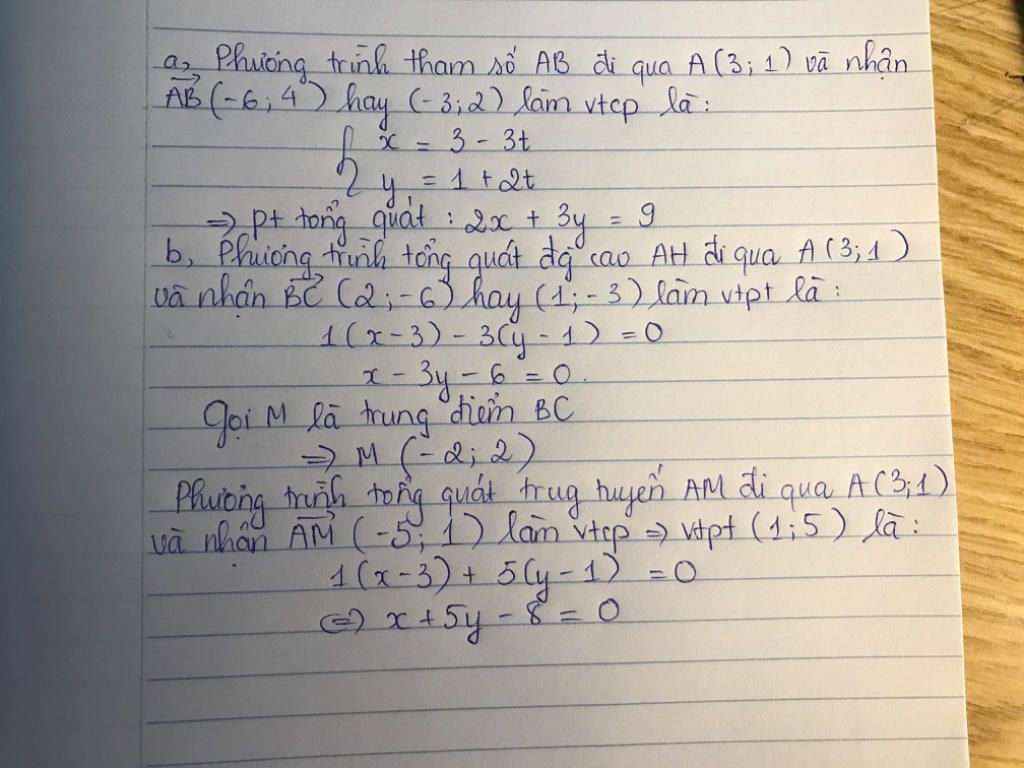 a, Phương trình tham số AB đi qua A(3;1) và nhận
$\overrightarrow{AB}$(-6;4) hay (-3;2) làm vtcp là:
{ x = 3 - 3t
y = 1 + 2t
=> pt tổng quát : 2x + 3y = 9
b, Phương trình tổng quát đg cao AH đi qua A(3;1)
và nhận $\overrightarrow{BC}$ (2;-6) hay (1;-3) làm vtpt là:
1(x-3) - 3(y-1) = 0
x - 3y - 6 = 0.
Gọi M là trung điểm BC
=> M (-2;2)
Phương trình tổng quát trug tuyến AM đi qua A(3;1)
và nhận $\overrightarrow{AM}$ (-5;1) làm vtcp => vtpt (1;5) là:
1(x-3) + 5(y-1) = 0
<=> x + 5y - 8 = 0